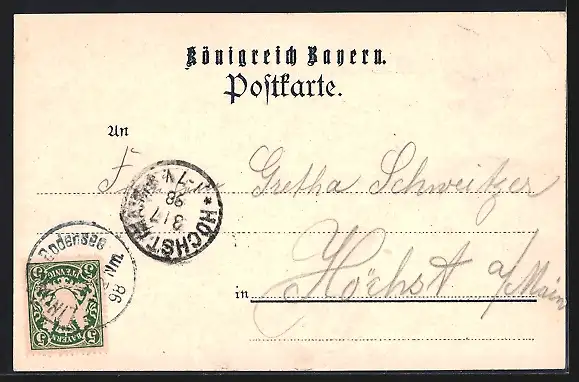 Königreich Bayern.
Postkarte.
An
Gretha Schweitzer
in Höchst a/Main
HÖCHST
3 1/7
98
7-
Bodensee
Nm.
98
5 5
PFENNIG
BAYERN
5 5